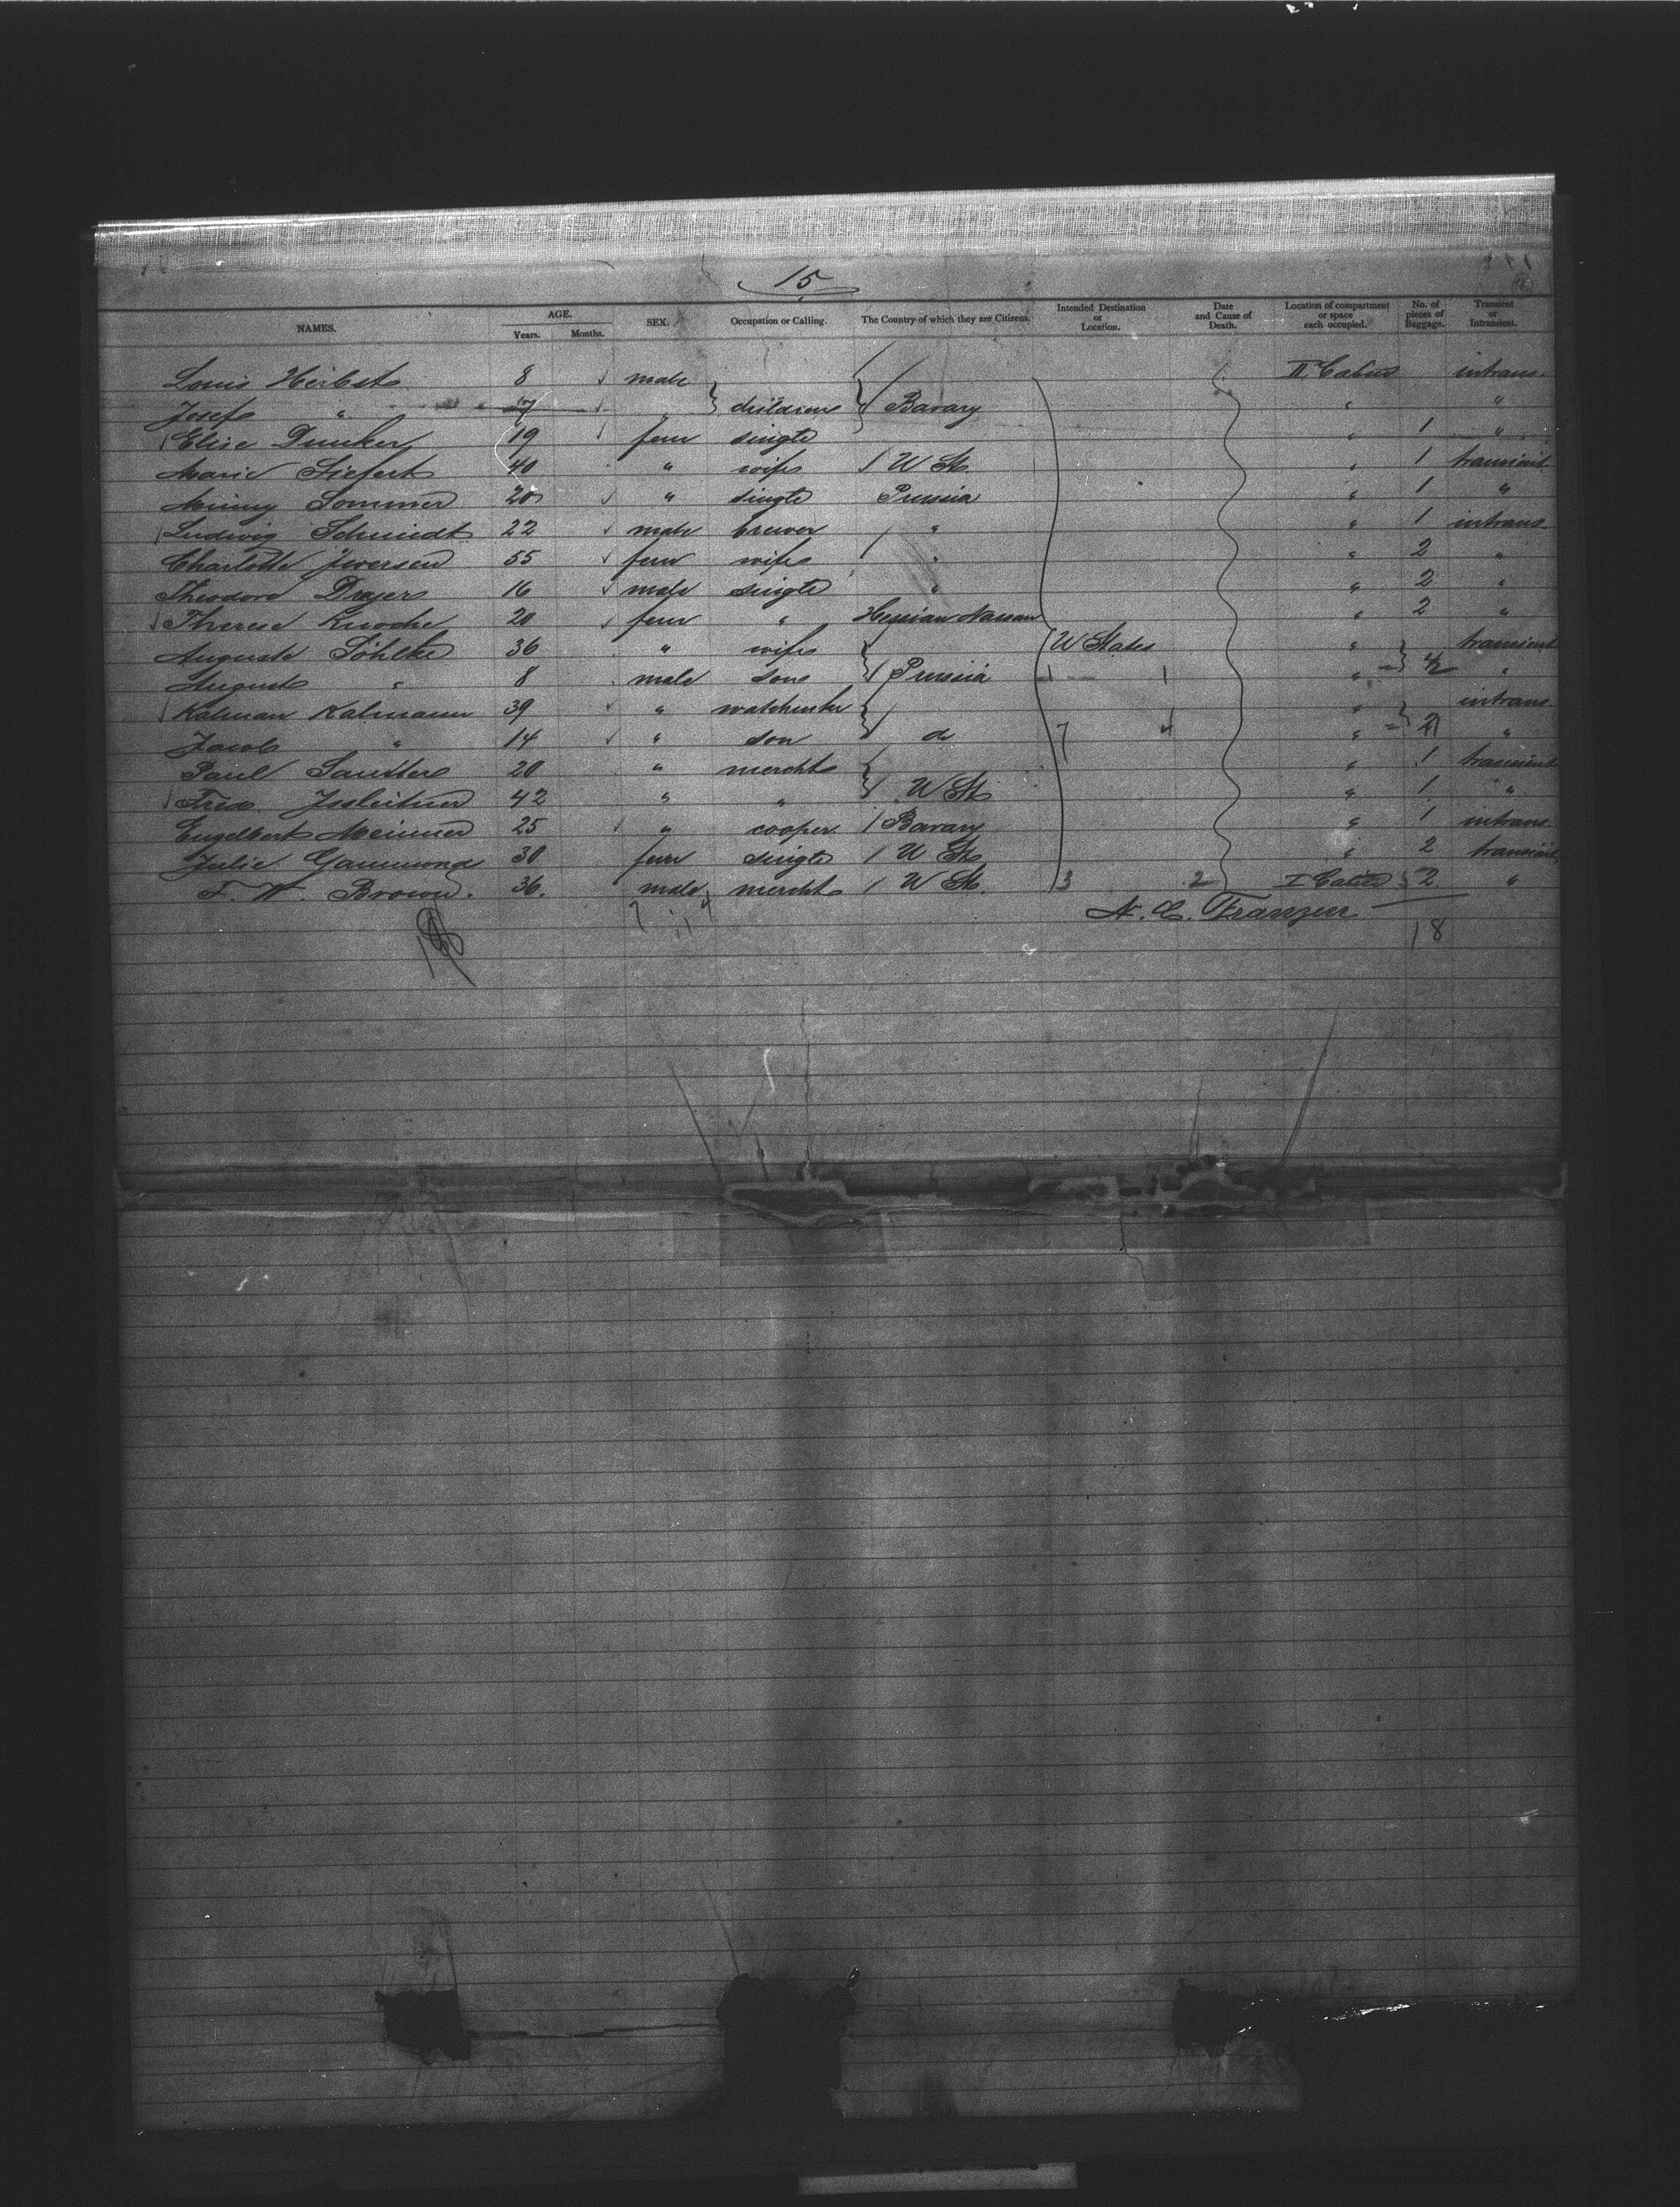 15
NAMES. AGE. Years. Months. SEX. Occupation or Calling. The Country of which they are Citizens. Intended Destination or Location. Date and Cause of Death. Location of compartment or space each occupied. No. of pieces of Baggage. Transient or Intransient.
Louis Herbst 8 male II Cabin intrans.
Josef " " children Bavary " "
Elise Dunker 19 fem single " 1 "
Marie Siefert 40 " wife U St. " 1 transient
Minny Sommer 20 " single Prussia " 1 "
Ludwig Schmidt 22 male brewer " " 1 intrans
Charlotte Iwersen 55 fem wife " " 2 "
Theodore Dreyer 16 male single " " 2 "
Therese Knoche 20 fem " Hessian Nassau " 2 "
Auguste Töhlke 36 " wife U States " transient
August " 8 male son Prussia " 2 "
Kalman Kalmann 39 " " intrans
Jacob " 14 " son do " "
Paul Sautter 20 " mercht " 1 transient
Fred. Issleitner 42 " " U St. " 1 "
Engelbert Meinner 25 " cooper Bavary " 1 intrans.
Julie Gammond 30 fem single U St. " 2 transient
F. W. Brown. 36. male mercht U St. 3 2 I Cabin 2 "
N. C. Franzen
18